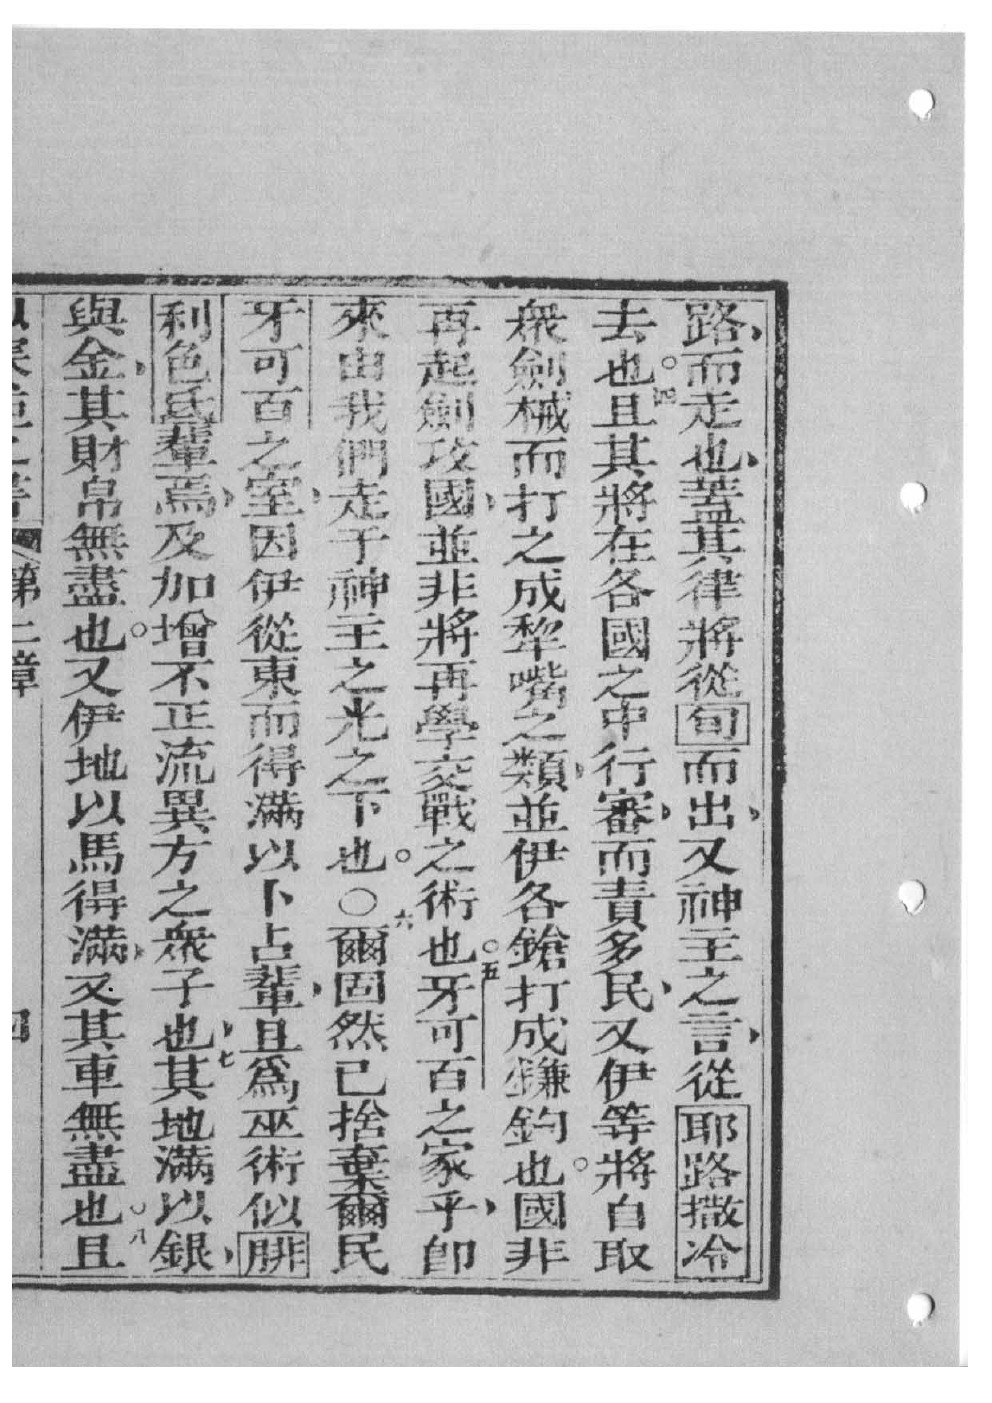 路而走也蓋其律將從旬而出又神主之言從耶路撒冷
去也。四且其將在各國之中行審而責多民又伊等將自取
衆劍械而打之成犂嘴之類並伊各鎗打成鐮鈎也。國非
再起劍攻國並非將再學交戰之術也。五牙可百之家乎卽
來由我們走于神主之光之下也。○六爾固然已捨棄爾民
牙可百之室因伊從東而得滿以卜占輩且爲巫術似腓
利色氏輩焉及加增不正流異方之衆子也七其地滿以銀
與金其財帛無盡也。又伊地以馬得滿又其車無盡也。八且
第二章 四